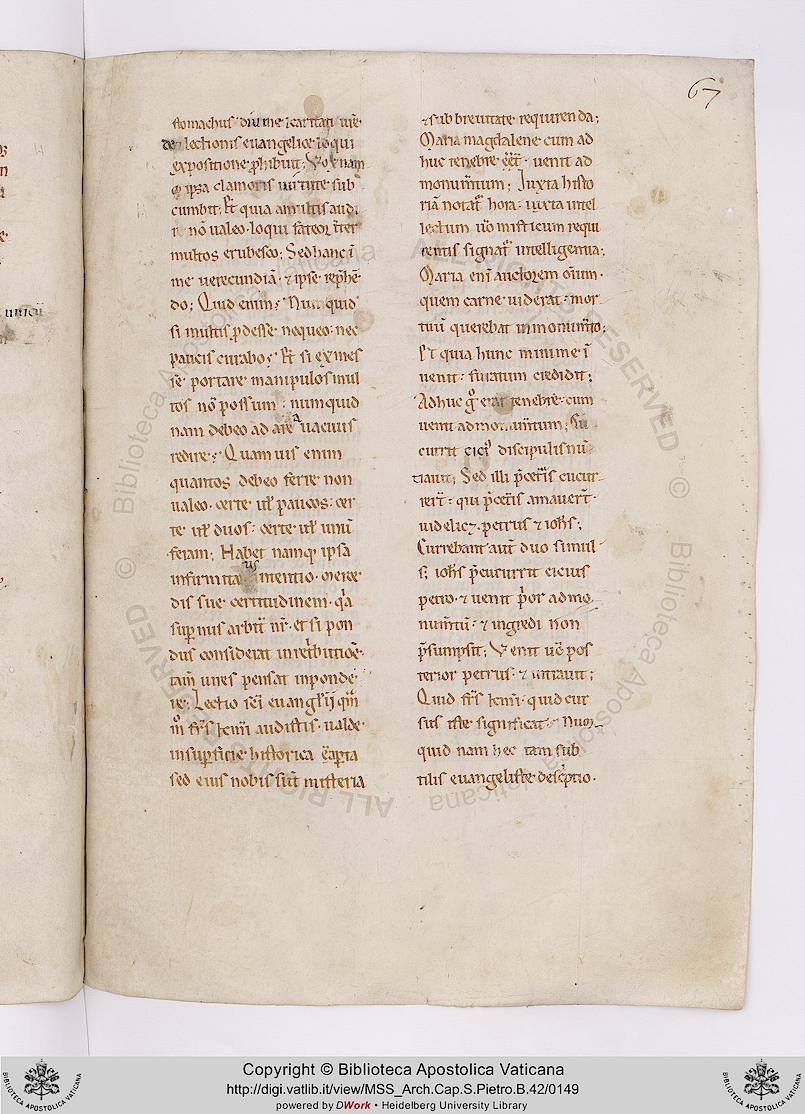 67
stomachus diu me caritati ur̄e
de lectionis euangelice loqui
expositione ꝓhibuit; Vox nam
q; ipsa clamoris uirtute sub
cumbit; Et quia a multis audi
ri nō ualeo. loqui fateor īter
multos erubesco; Sed hanc ī
me uerecundiā. & ipse rep̄hē
do; Quid enim; Nunquid
si multis ꝓdesse nequeo. nec
paucis curabo; Et si ex mes
se portare manipulos mul
tos nō possum. numquid
nam debeo ad areā uacuus
redire; Quamuis enim
quantos debeo ferre non
ualeo. certe uł paucos. cer
te uł duos. certe uł unū
feram; Habet namq; ipsa
infirmitatis intentio. merce
dis sue certitudinem. q̄a
supnus arbit̄ nr̄. et si pon
dus considerat in ret̄butiōe.
tam̄ uires pensat in ponde
re; Lectio sc̄i euangl̄ii q̄m
m̊ fr̄s kr̄mi audistis. ualde
in supficie historica ē apta
sed eius nobis sūt misteria
& sub breuitate requirenda;
Maria magdalene cum ad
huc tenebre eēt. uenit ad
monum̄tum; Iuxta histo
riā notat̄ hora. iuxta intel
lectum ūo misticum requi
rentis signat̄ intelligentia;
Maria eni auctorem om̄ium.
quem carne uiderat. mor
tuū querebat in monum̄to;
Et quia hunc minime ī
uenit. furatum credidit;
Adhuc g̊ erāt tenebre. cum
uenit ad monum̄tum; Cu
currit cici᾽ discipulis nū
tiauit; Sed illi p̄ cet̄is cucur
rer̄t. qui p̄ cet̄is amauer̄t.
uidelicz. petrus & ioh̄s;
Currebant aut̄ duo simul
s; ioh̄s p̄cucurrit cicius
petro. & uenit p̄or ad mo
num̄tū. & ingredi non
p̄sumpsit; Venit ūo pos
terior petrus. & intrauit;
Quid fr̄s kr̄mi. quid cur
sus iste significat; Num
quid nam hec tam sub
tilis euangeliste desc̄ptio.
Copyright © Biblioteca Apostolica Vaticana
http://digi.vatlib.it/view/MSS_Arch.Cap.S.Pietro.B.42/0149
powered by DWork • Heidelberg University Library
BIBLIOTECA APOSTOLICA VATICANA
BIBLIOTECA APOSTOLICA VATICANA